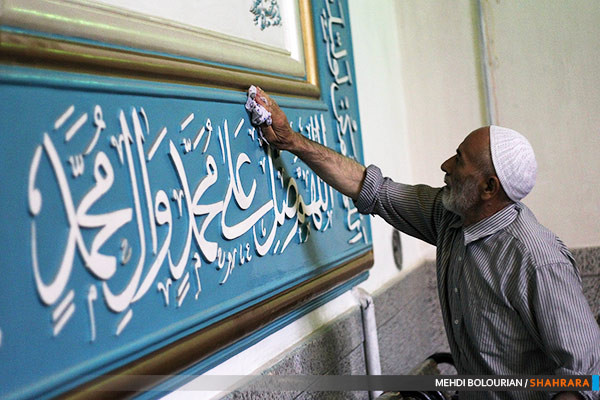 اللهم صل علی محمد وآل محمد
MEHDI BOLOURIAN / SHAHRARA